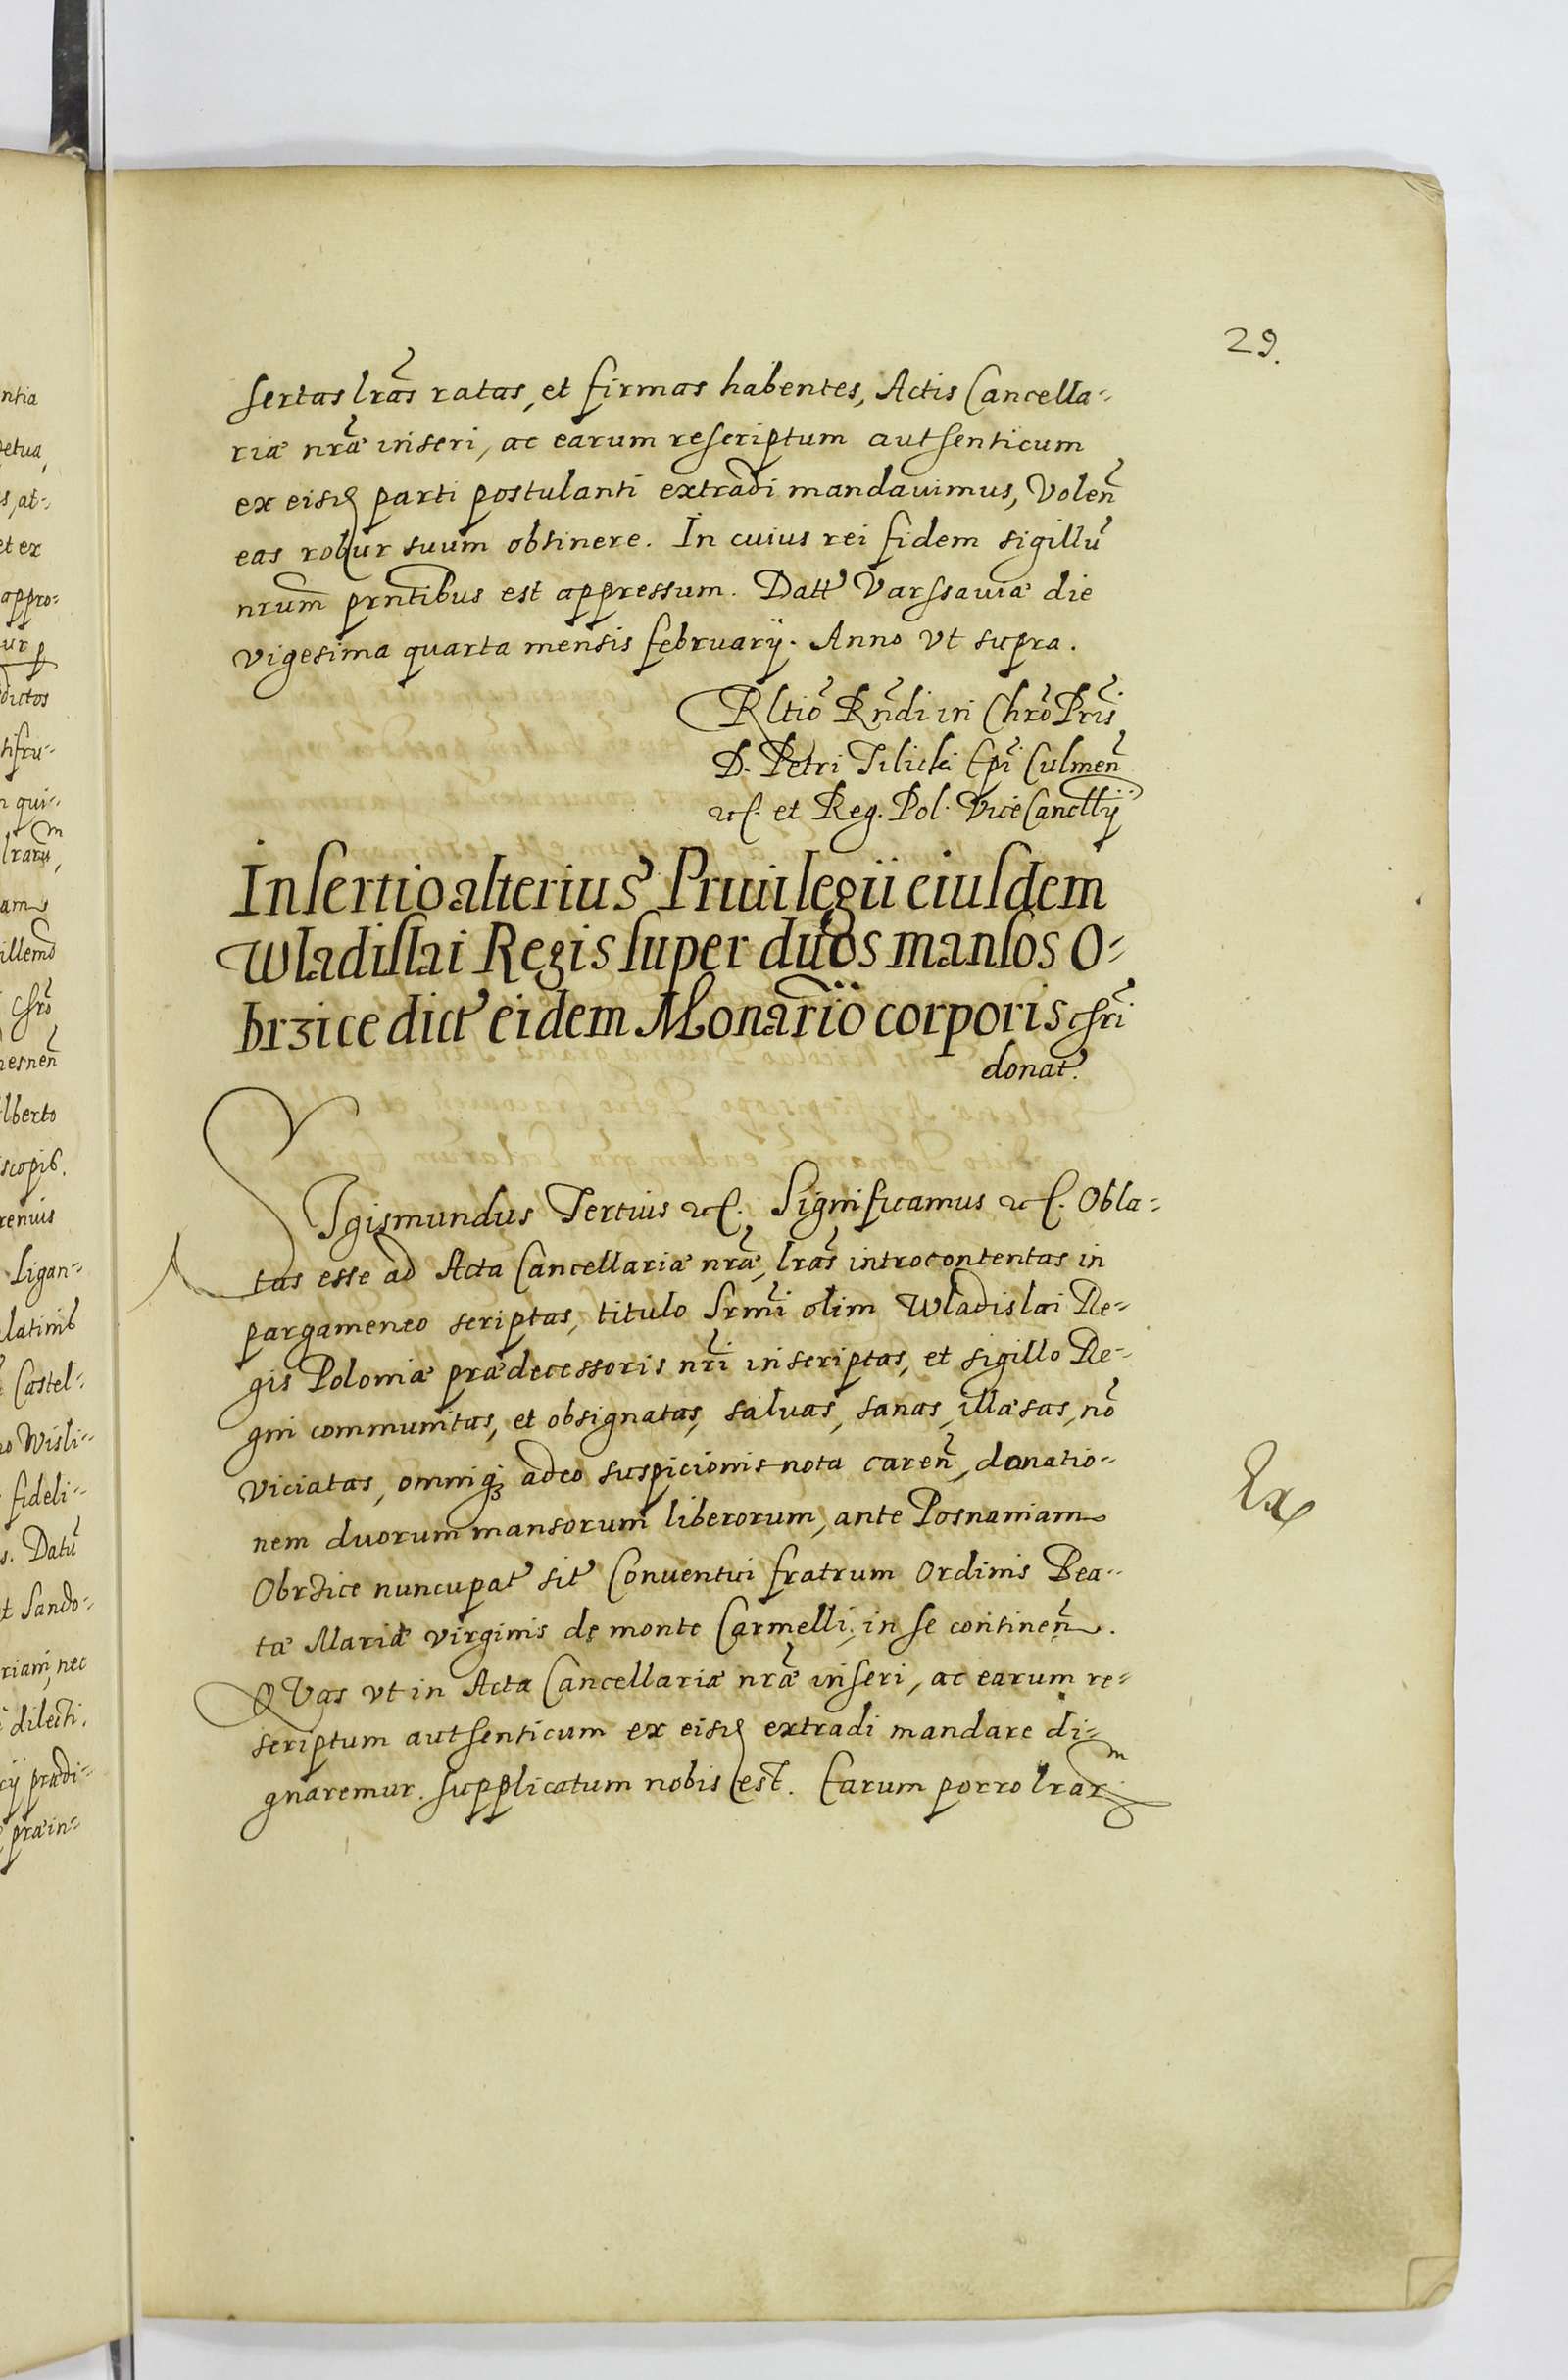 29.
sertas lrãs ratas, et firmas habentes, Actis Cancella-
riæ nræ̃ inseri, ac earum rescriptum authenticum
ex eisd parti postulanti extradi mandauimus, Volen̄
eas robur suum obtinere. In cuius rei fidem sigillū
nrum̄ prñtibus est appressum. Datt Varssauiæ die
vigesima quarta mensis februarij. Anno vt supra.
Rltiõ Rñdi in Chrõ Prĩs
D. Petri Tilicki Epĩ Culmeñ
etc. et Reg. Pol. ViceCancllij
Insertio alterius Priuilegii eiusdem
Wladislai Regis super duos mansos O-
brzice dict eidem Monar̃io corporis chrĩ
donat.
SIgismundus Tertius etc. Significamus etc. Obla-
tas esse ad Acta Cancellariæ nræ̃, lrãs introcontentas in
pargameneo scriptas, titulo Srmĩ olim Wladislai Re-
gis Poloniæ prædecessoris nrĩ inscriptas, et sigillo Re-
gni communitas, et obsignatas, saluas, sanas, illæsas, nõ
viciatas, omniqȝ adeo suspicionis nota careñ, donatio-
nem duorum mansorum liberorum, ante Posnaniam
Obrzice nuncupat sit Conuentui fratrum Ordinis Bea-
tæ Mariæ virginis de monte Carmelli, in se contineñ.
QVas vt in Acta Cancellariæ nræ̃ inseri, ac earum re-
scriptum authenticum ex eisd extradi mandare di-
gnaremur. supplicatum nobis est. Earum porro lrarm
Ex